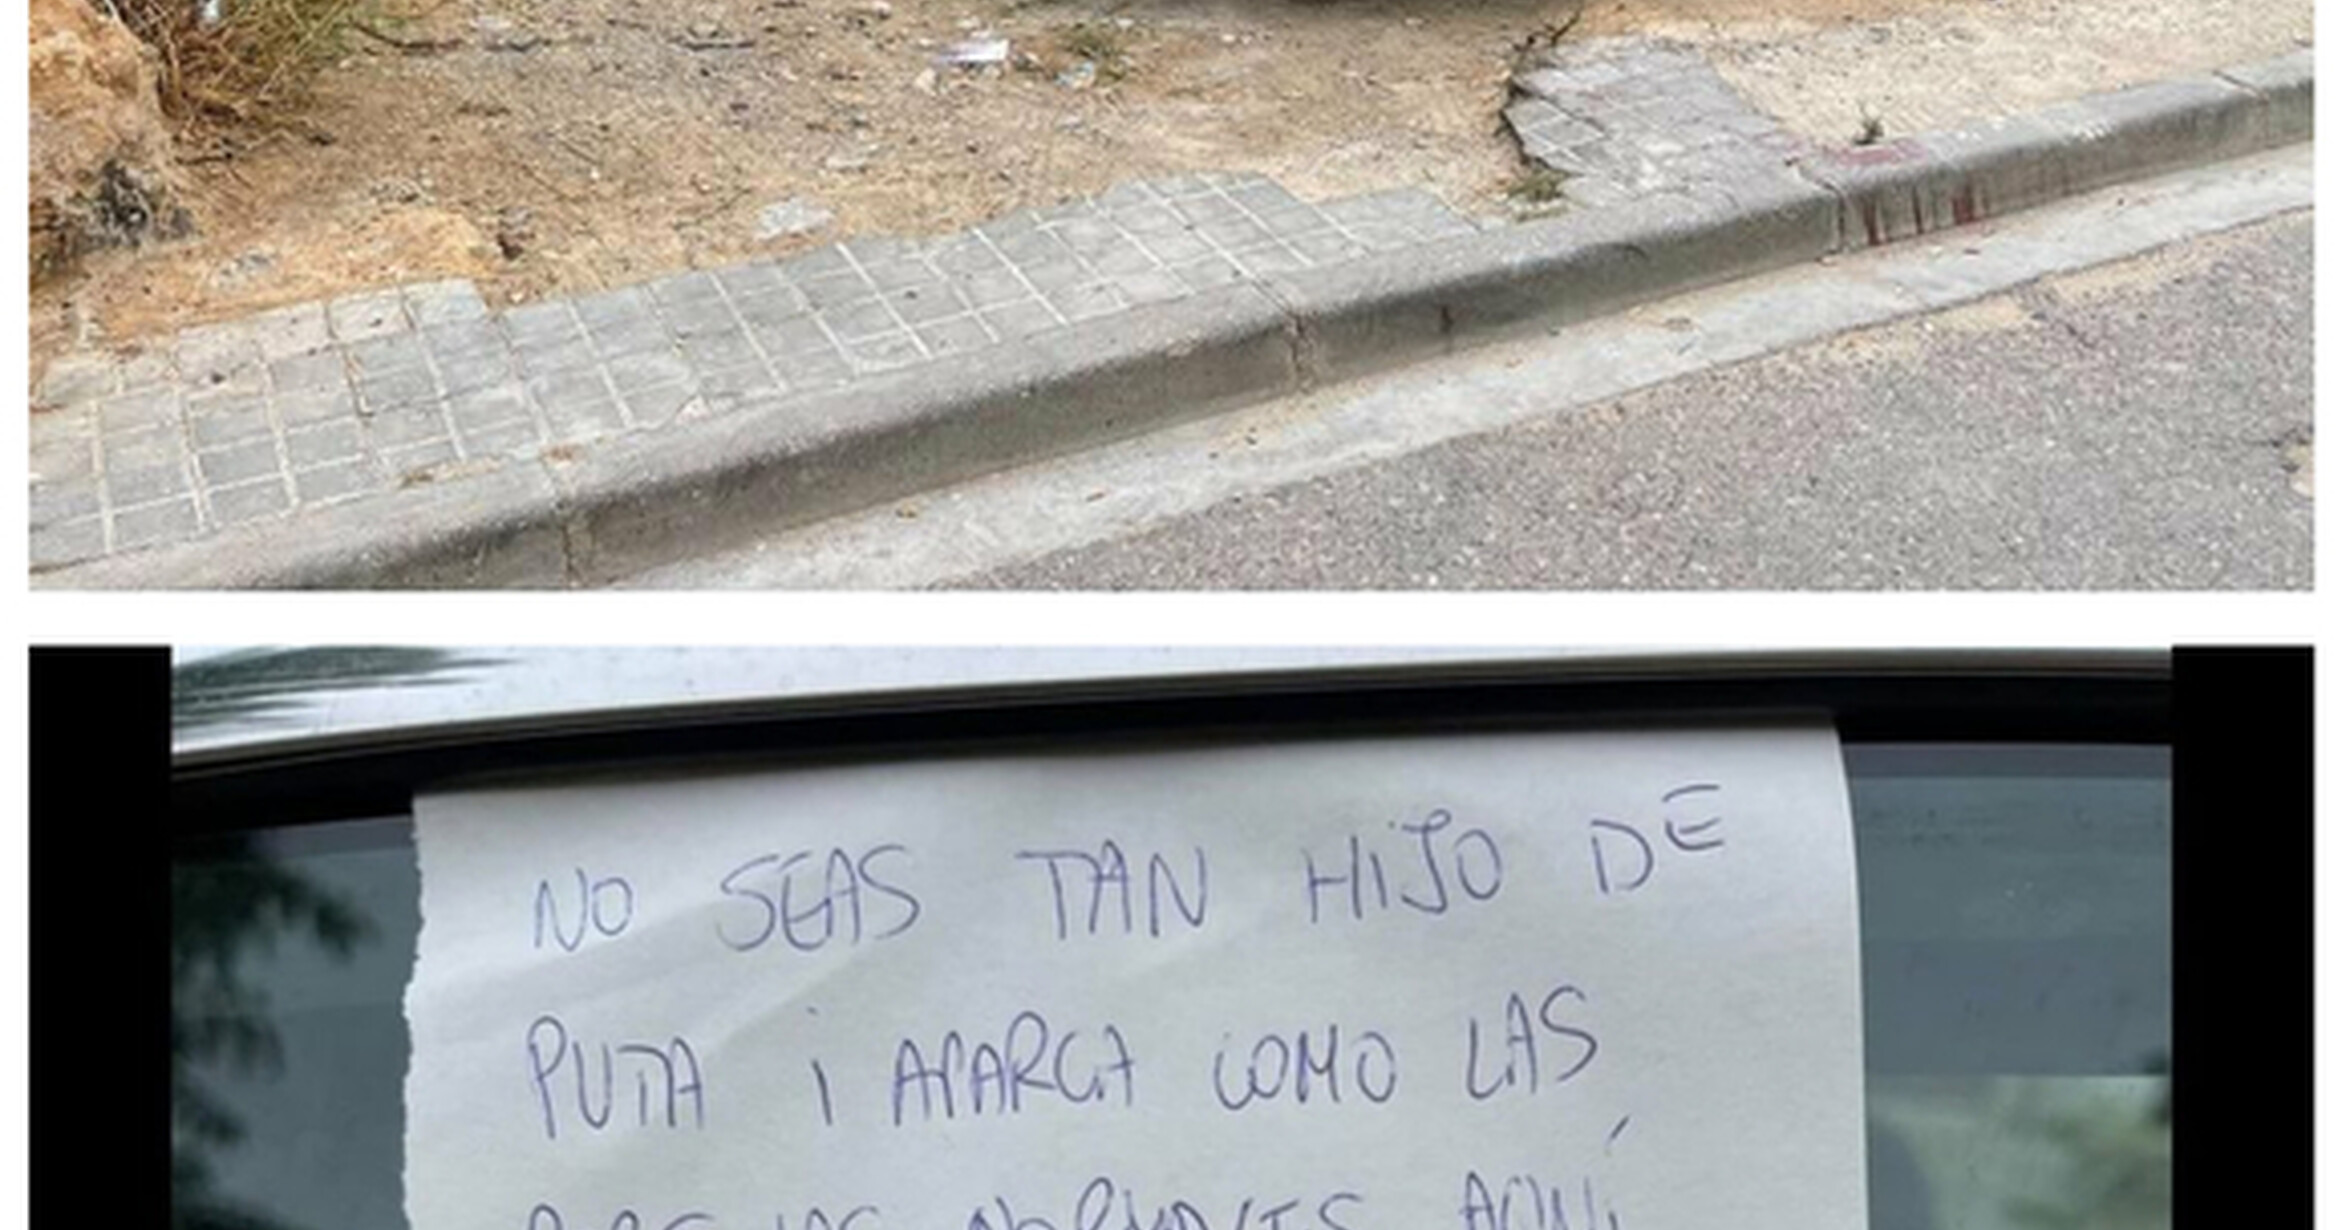 NO SEAS TAN HIJO DE
PUTA i APARCA COMO LAS
NORMALES AQUÍ